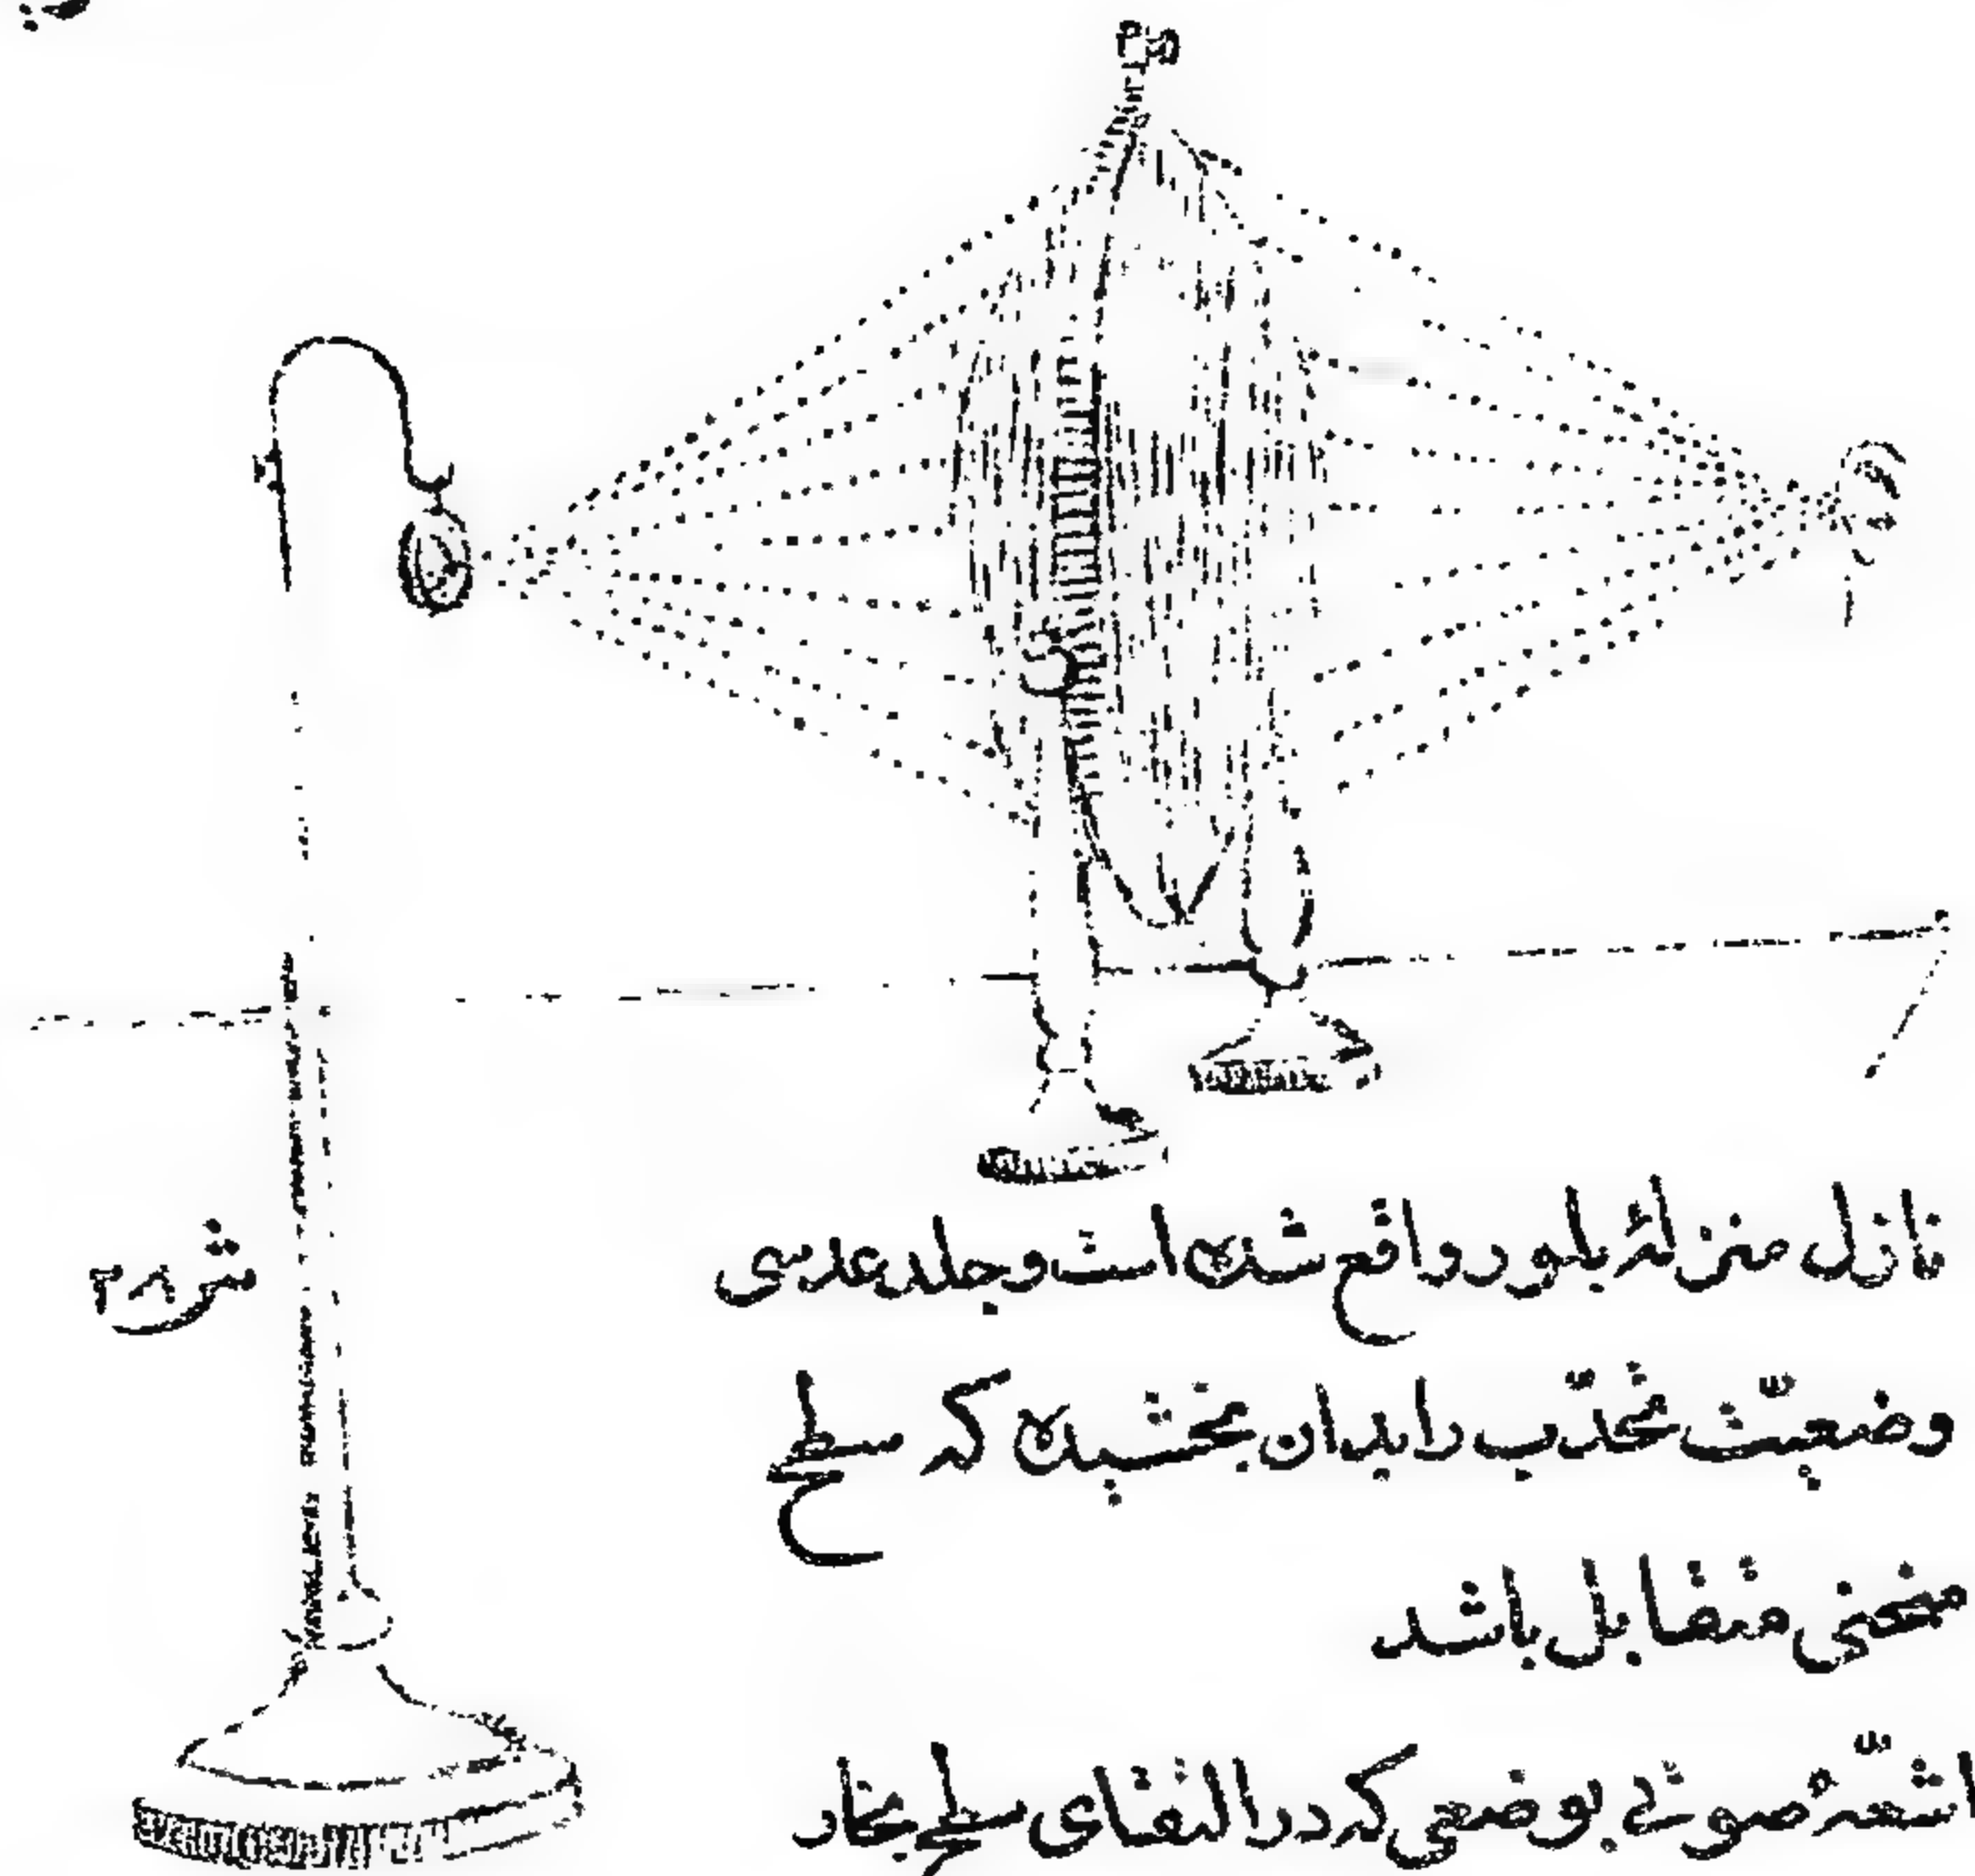 نازل منزلهٔ بلور واقع شده است و جلد عدسی
وضعیّت محدّب را بدان بخشیده که سطح
منحنی متقابل باشد
اشعّهٔ صوتی بوضعی که در التقای سطح بخار
ش ۲۸